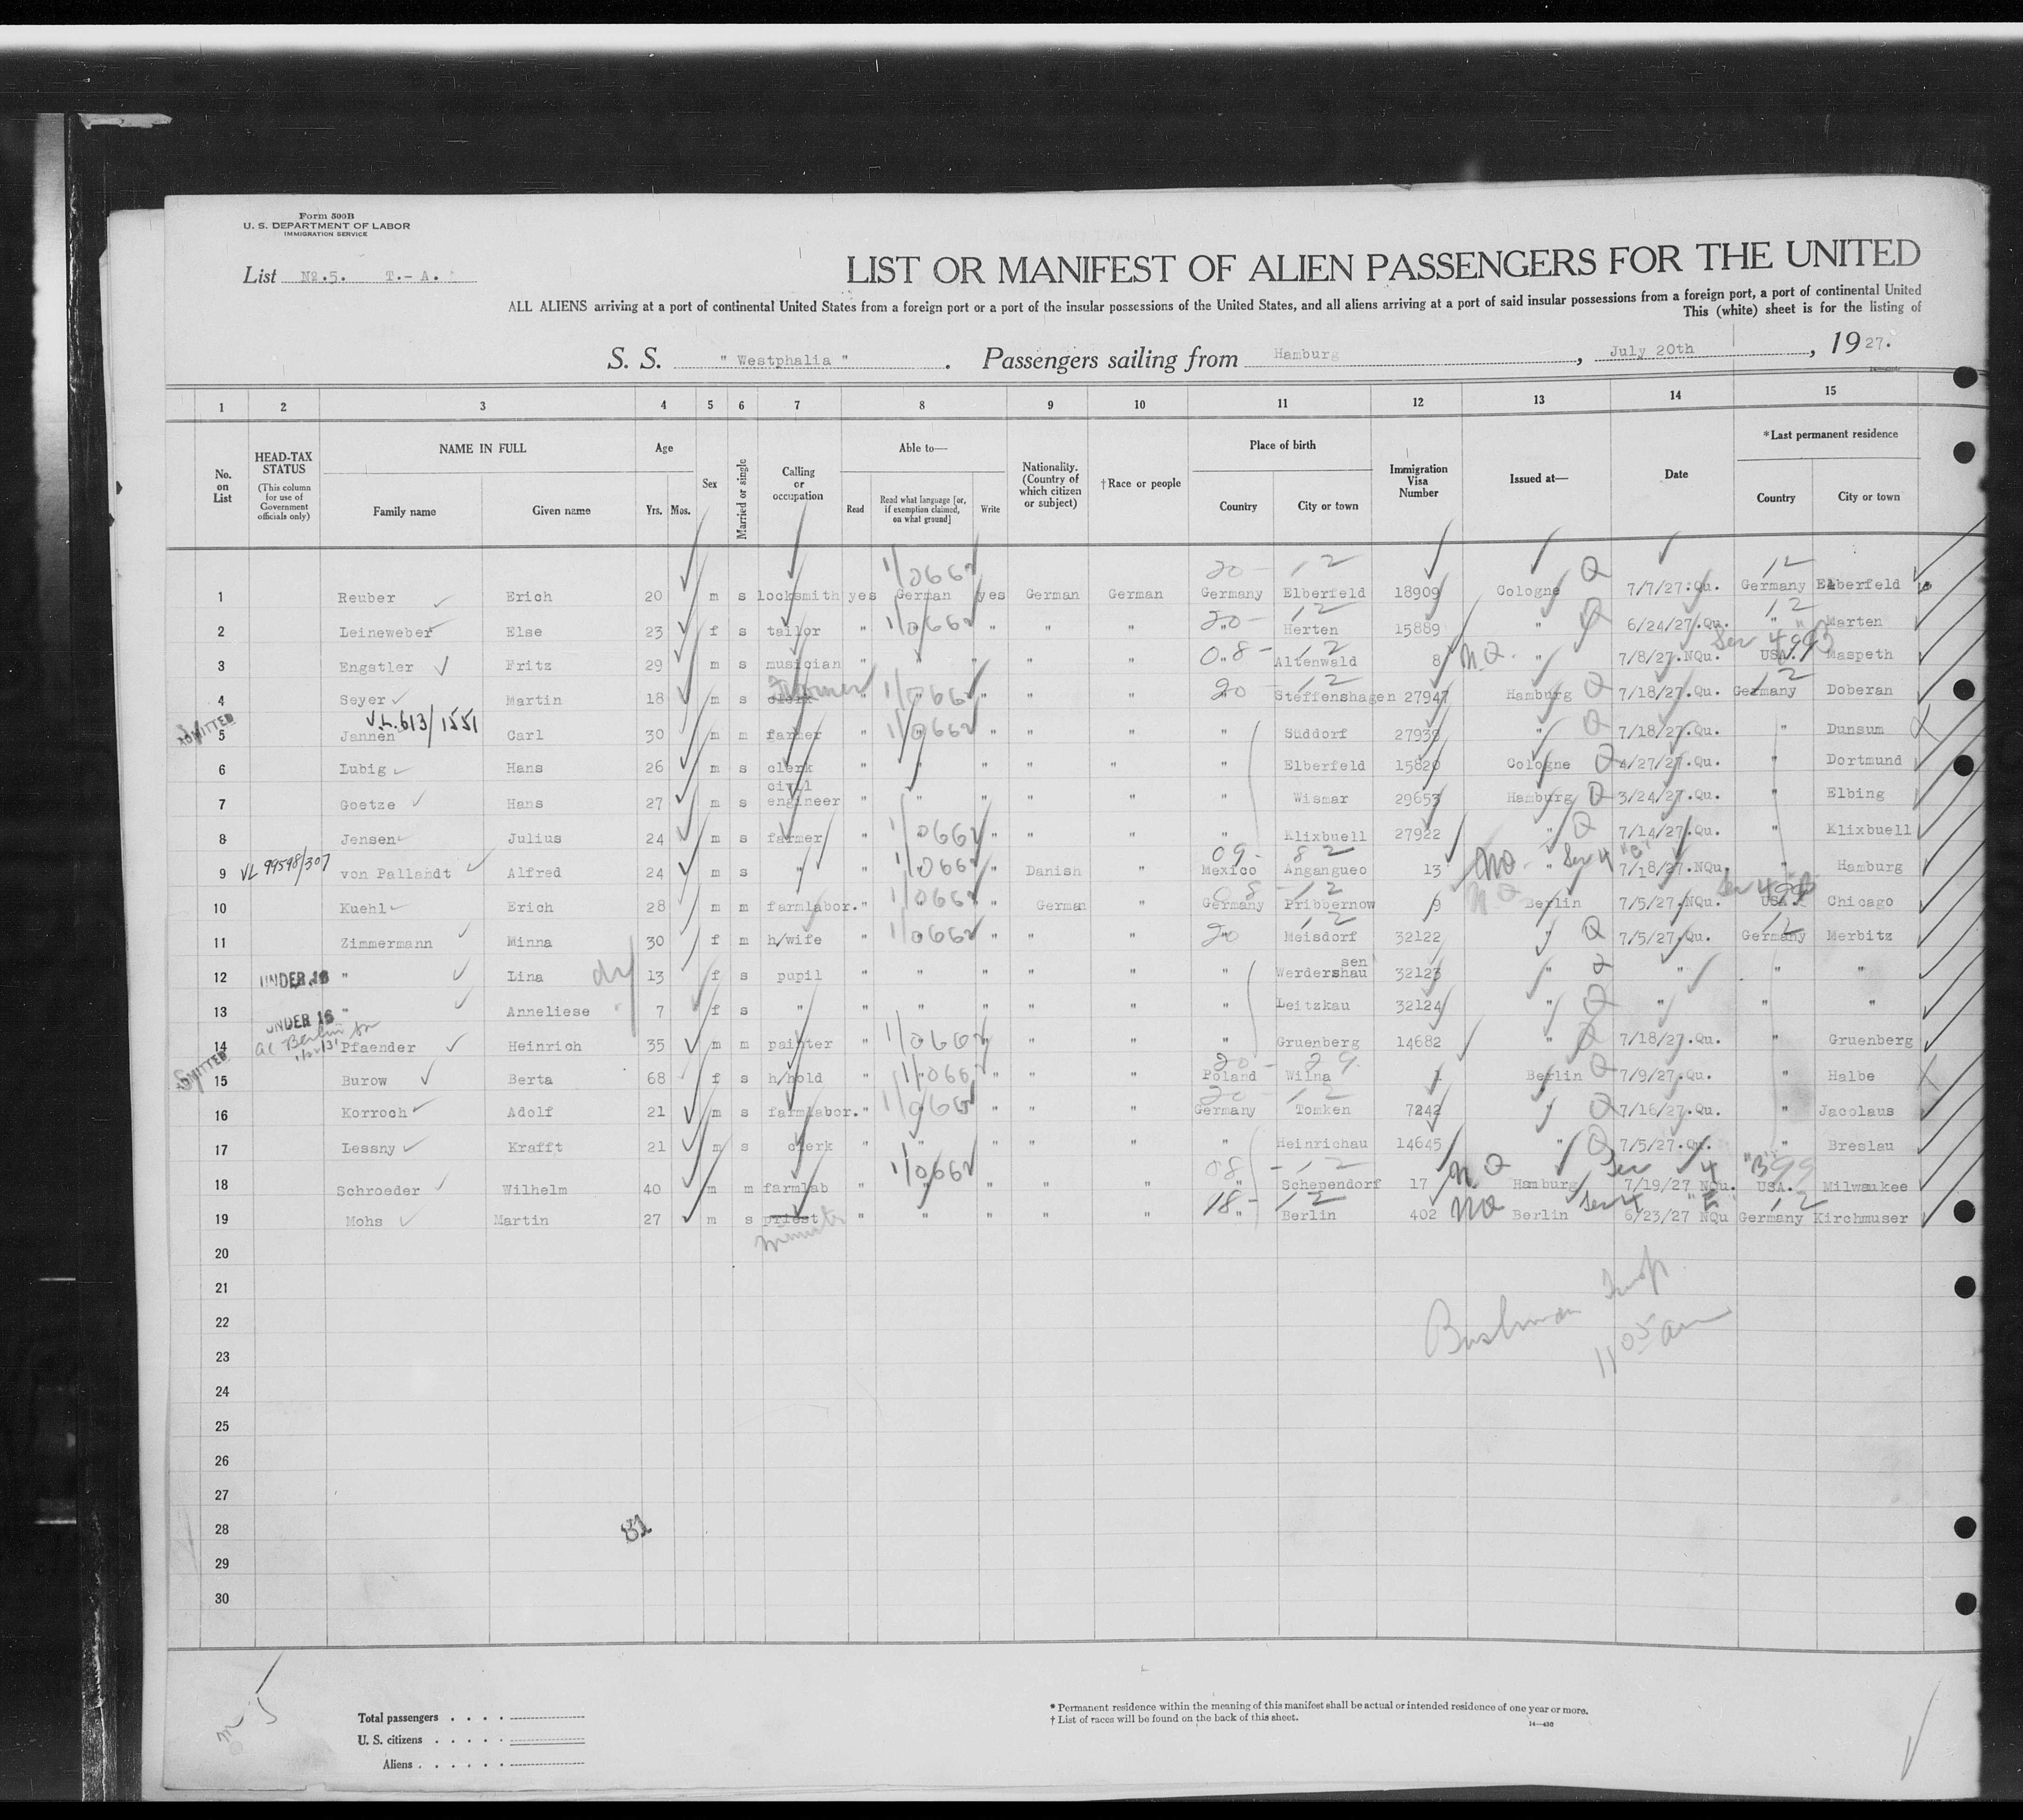 Form 500B
U. S. DEPARTMENT OF LABOR
IMMIGRATION SERVICE
List No.5. T.- A.
LIST OR MANIFEST OF ALIEN PASSENGERS FOR THE UNITED
ALL ALIENS arriving at a port of continental United States from a foreign port or a port of the insular possessions of the United States, and all aliens arriving at a port of said insular possessions from a foreign port, a port of continental United
This (white) sheet is for the listing of
S. S. " Westphalia " . Passengers sailing from Hamburg , July 20th , 1927.
1 2 3 4 5 6 7 8 9 10 11 12 13 14 15
No. on List
HEAD-TAX STATUS (This column for use of Government officials only)
NAME IN FULL Family name Given name
Age Yrs. Mos.
Sex
Married or single
Calling or occupation
Able to— Read Read what language [or, if exemption claimed, on what ground] Write
Nationality. (Country of which citizen or subject)
†Race or people
Place of birth Country City or town
Immigration Visa Number
Issued at—
Date
*Last permanent residence Country City or town
20- 12 Q 12
1 Reuber Erich 20 m s locksmith yes German yes German German Germany Elberfeld 18909 Cologne 7/7/27.Qu. Germany Elberfeld
2 Leineweber Else 23 f s tailor " " " " " 20- 12 Herten 15889 " Q 6/24/27.Qu. 12 " Marten
3 Engstler Fritz 29 m s musician " " " " " 08- 12 Altenwald 8 N.Q. " 7/8/27.NQu. USA. Maspeth
4 Seyer Martin 18 m s clerk farmer " " " " " 20 12 Steffenshagen 27947 Hamburg Q 7/18/27.Qu. Germany 12 Doberan
ADMITTED V.L.613/1551
5 Jannen Carl 30 m m farmer " " " " " Süddorf 27939 " Q 7/18/27.Qu. " Dunsum X
6 Lubig Hans 26 m s clerk " " " " " " Elberfeld 15820 Cologne Q 4/27/27.Qu. " Dortmund
7 Goetze Hans 27 m s civil engineer " " " " " " Wismar 29653 Hamburg Q 3/24/27.Qu. " Elbing
8 Jensen Julius 24 m s farmer " " " " " Klixbuell 27922 " Q 7/14/27.Qu. " Klixbuell
VL 99598/307
9 von Pallandt Alfred 24 m s " " " " Danish " 09- 82 Mexico Angangueo 13 NQ " Sec 4 7/18/27.NQu. " Hamburg
10 Kuehl Erich 28 m m farmlabor. " " " German " 08 -12 Germany Pribbernow 9 NQ Berlin 7/5/27.NQu. USA. Chicago
11 Zimmermann Minna 30 f m h/wife " " " " " 20 12 Meisdorf 32122 " Q 7/5/27.Qu. Germany 12 Merbitz
UNDER 16
12 " Lina 13 f s pupil " " " " " " Werdershausen 32123 " Q " " "
UNDER 16
13 " Anneliese 7 f s " " " " " " " Leitzkau 32124 " Q " " "
14 Pfaender Heinrich 35 m m painter " " " " " Gruenberg 14682 " Q 7/18/27.Qu. " Gruenberg
ADMITTED
15 Burow Berta 68 f s h/hold " " " " " 20- 29 Poland Wilna 1 Berlin Q 7/9/27.Qu. " Halbe X
16 Korroch Adolf 21 m s farmlabor. " " " " " 20 12 Germany Tomken 7242 " Q 7/16/27.Qu. " Jacolaus
17 Lessny Krafft 21 m s clerk " " " " " " Heinrichau 14645 " Q 7/5/27.Qu. " Breslau
18 Schroeder Wilhelm 40 m m farmlab " " " " " 08 -12 Schependorf 17 NQ Hamburg Sec 4 "B" 7/19/27 NQu. USA. Milwaukee
19 Mohs Martin 27 m s priest " " " " " 18- 12 Berlin 402 NQ Berlin Sec 4 6/23/27 NQu Germany 12 Kirchmuser
20
21
22
23
24
25
26
27
28
29
30
Bushman Insp
11 05 am
81
Total passengers
U. S. citizens
Aliens
* Permanent residence within the meaning of this manifest shall be actual or intended residence of one year or more.
† List of races will be found on the back of this sheet.
14—430